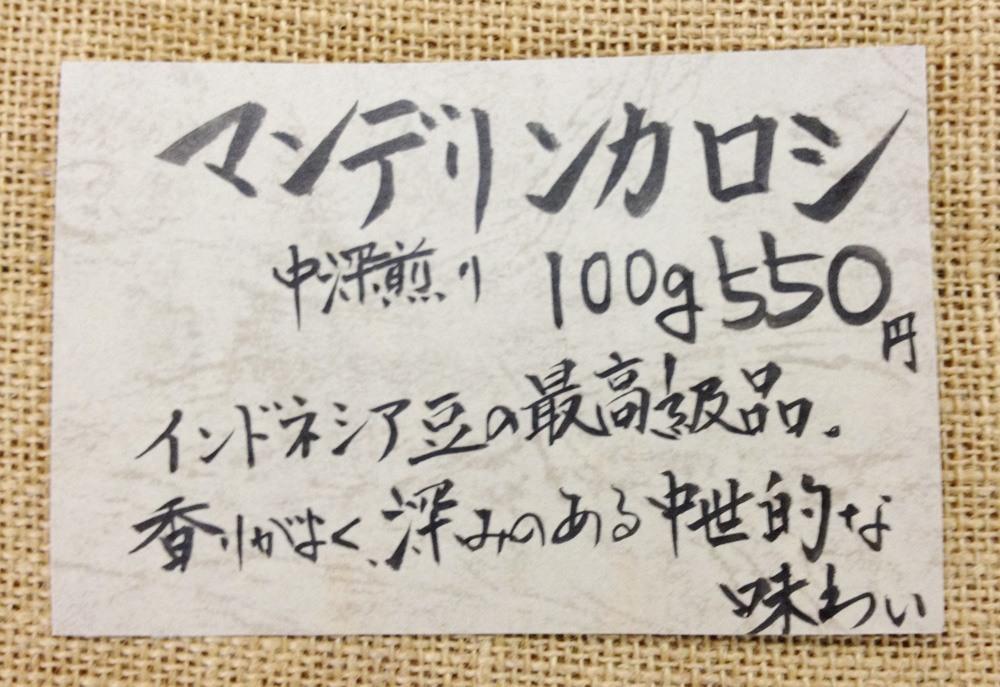 マンデリンカロシ
中深煎り 100g 550円
インドネシア豆の最高級品。
香りがよく、深みのある中世的な
味わい